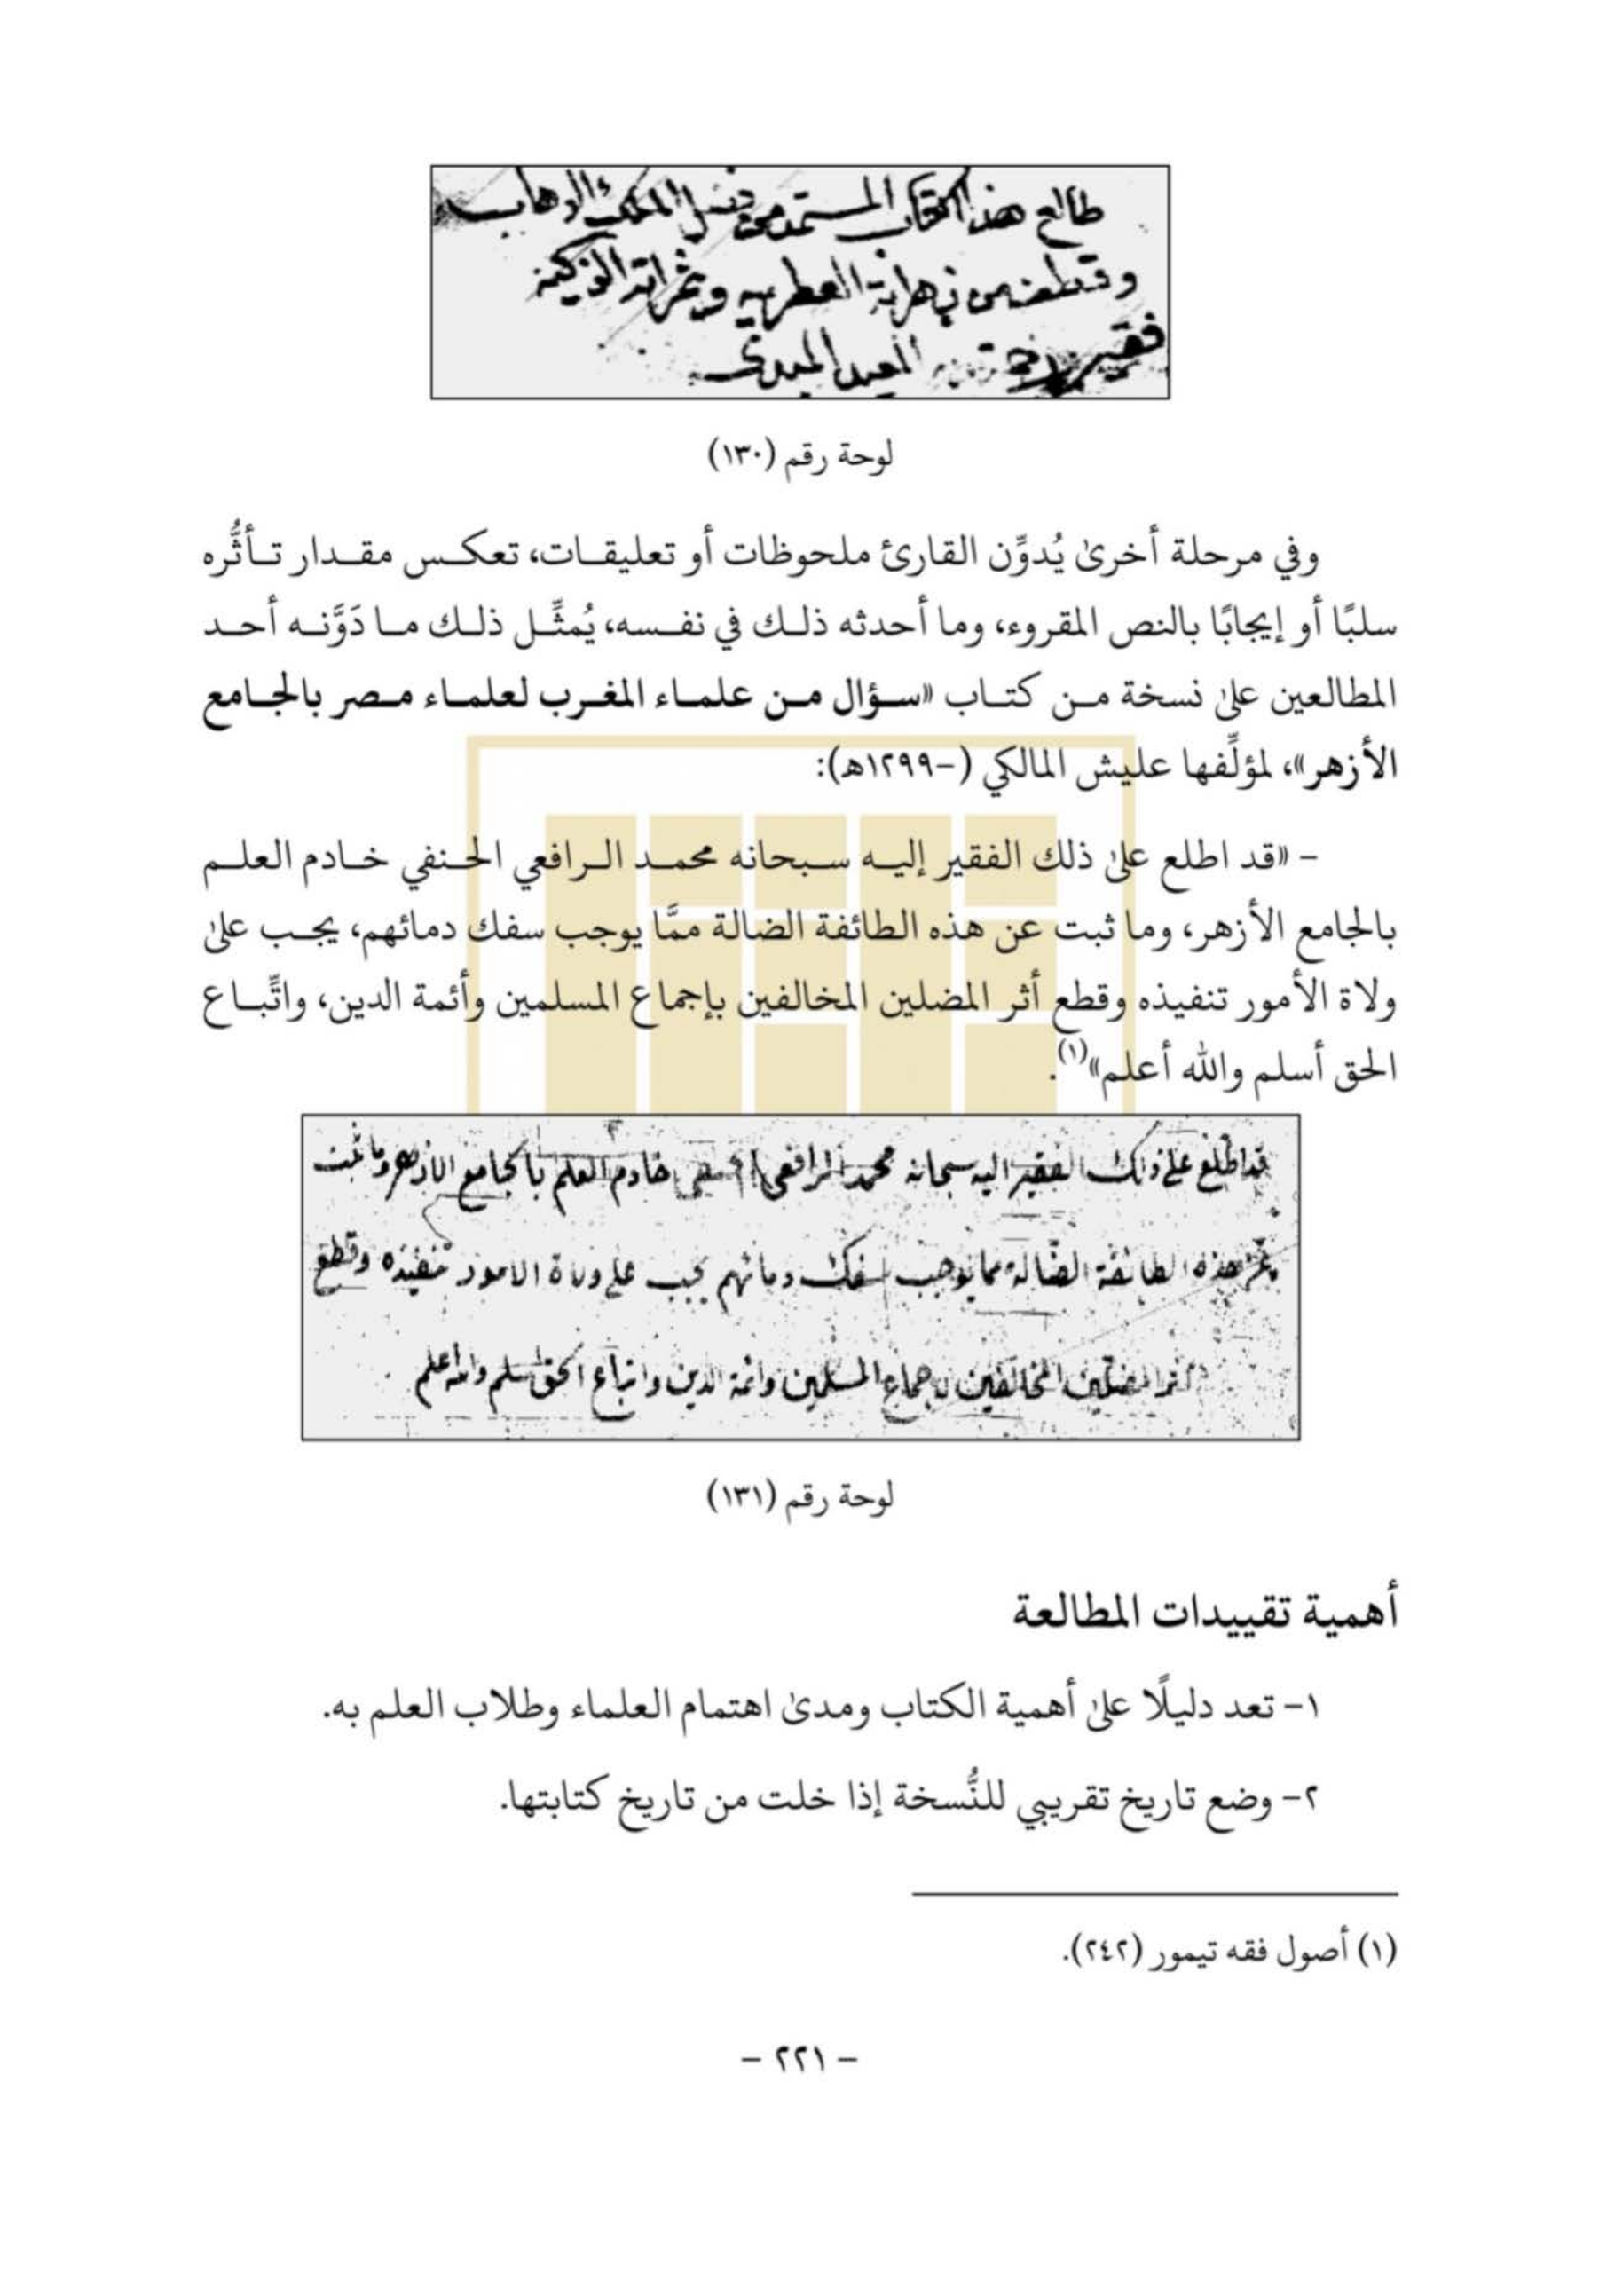 طالع هذا الكتاب المستمد من فضل الملك الوهاب
وقتطف من زهراته العطريه وثمراته الزكيه
فقير رحمة ربه المعيد المبدى
لوحة رقم (١٣٠)
وفي مرحلة أخرىٰ يُدوِّن القارئ ملحوظات أو تعليقـات، تعكـس مقـدار تـأثُّره
سلبًا أو إيجابًا بالنص المقروء، وما أحدثه ذلـك في نفـسه، يُمثِّـل ذلـك مـا دَوَّنـه أحـد
المطالعين علىٰ نسخة مـن كتـاب «سـؤال مـن علمـاء المغـرب لعلمـاء مـصر بالجـامع
الأزهر»، لمؤلِّفها عليش المالكي (-١٢٩٩هـ):
- «قد اطلع علىٰ ذلك الفقير إليـه سـبحانه محمـد الـرافعي الحـنفي خـادم العلـم
بالجامع الأزهر، وما ثبت عن هذه الطائفة الضالة ممَّا يوجب سفك دمائهم، يجـب علىٰ
ولاة الأمور تنفيذه وقطع أثر المضلين المخالفين بإجماع المسلمين وأئمة الدين، واتِّبـاع
الحق أسلم والله أعلم»(١).
قد اطلع على ذلك الفقير اليه سبحانه محمد الرافعي الحنفي خادم العلم بالجامع الازهر وما ثبت
عن هذه الطائفة الضالة مما يوجب سفك دمائهم يجب على ولاة الامور تنفيذه وقطع
اثر المضلين المخالفين لاجماع المسلمين وائمة الدين واتباع الحق اسلم والله اعلم
لوحة رقم (١٣١)
أهمية تقييدات المطالعة
١- تعد دليلًا علىٰ أهمية الكتاب ومدىٰ اهتمام العلماء وطلاب العلم به.
٢- وضع تاريخ تقريبي للنُّسخة إذا خلت من تاريخ كتابتها.
(١) أصول فقه تيمور (٢٤٢).
- ٢٢١ -